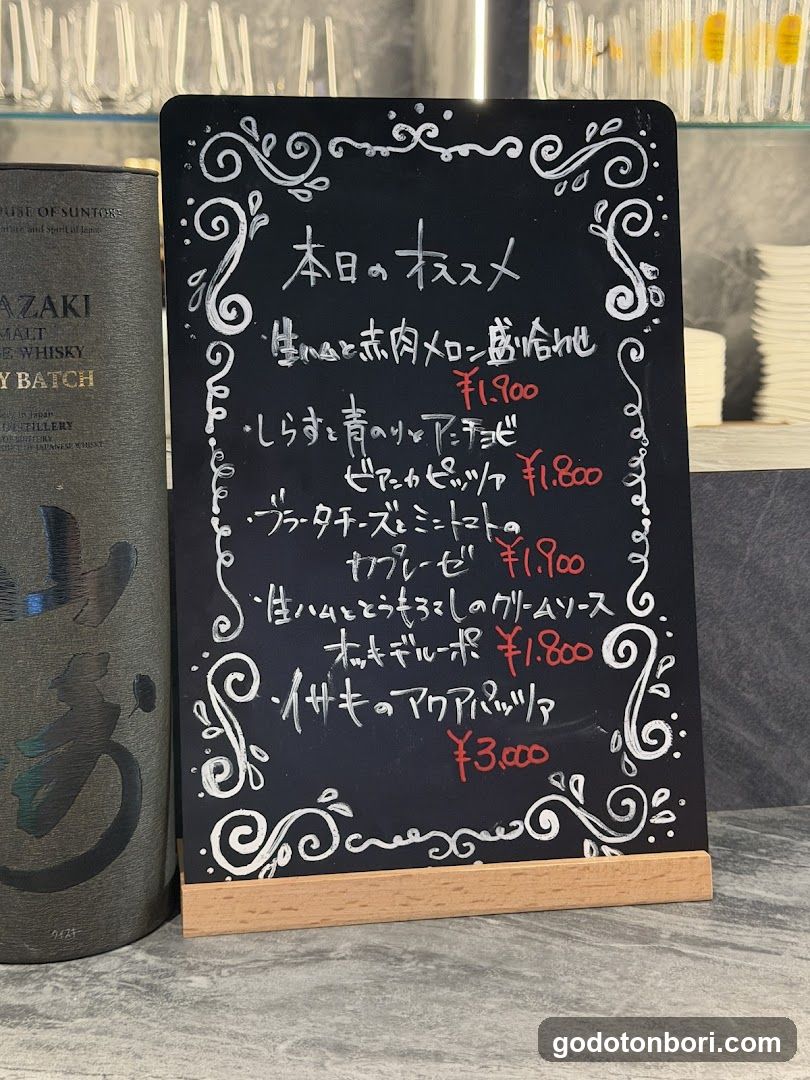 HOUSE OF SUNTORY
AZAKI
MALT
WHISKY
Y BATCH
DISTILLERY
山崎
ウイスキー
本日のオススメ
・生ハムと赤肉メロン盛り合わせ
¥1.900
・しらすと青のりとアンチョビ
ビアンカピッツァ ¥1.800
・ブラータチーズとミニトマトの
カプレーゼ ¥1.900
・生ハムととうもろこしのクリームソース
オッキデルーポ ¥1.800
・イサキのアクアパッツァ
¥3.000
godotonbori.com